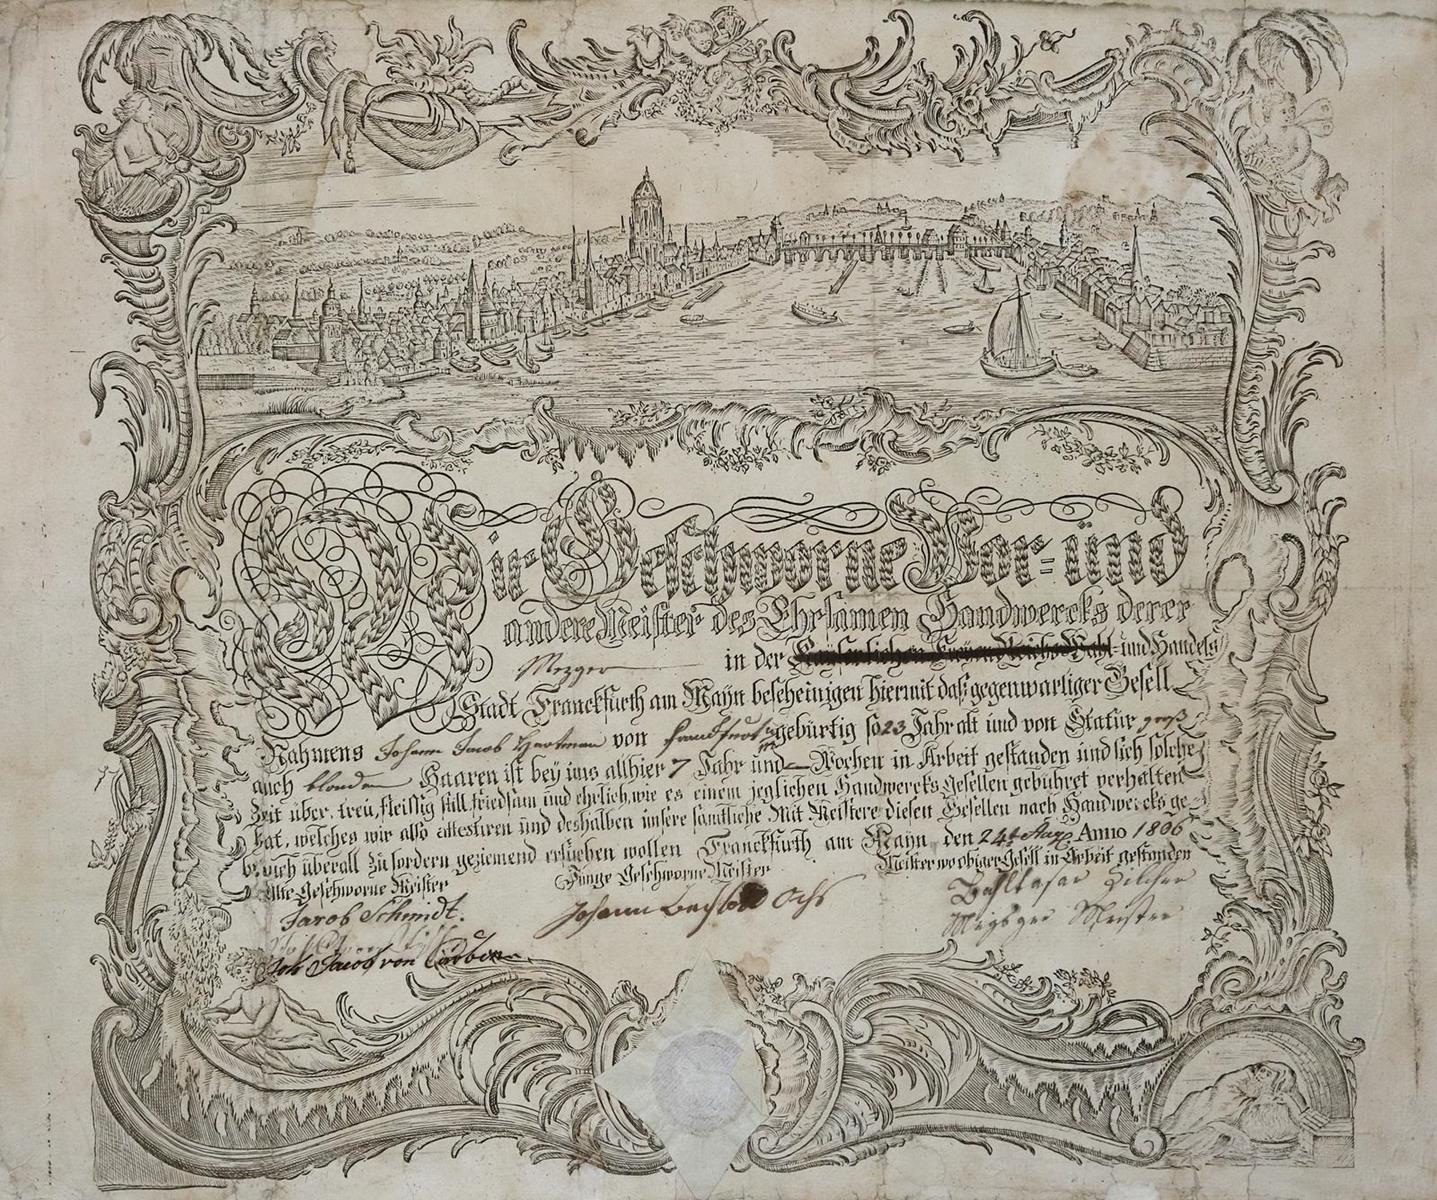 Wir Geschworne Vor= ünd
andere Meister des Ehrsamen Handwercks derer
Mezger in der Kaÿserlichen Freyen Reichs Wahl- und Handels
Stadt Franckfurth am Maÿn bescheinigen hiermit daß gegenwärtiger Gesell
Nahmens Johann Jacob Hartman von Franckfurt gebürtig so 23 Jahr alt und von Statur groß
auch blonden Haaren ist beÿ uns allhier 7 Jahr ünd — Wochen in Arbeit gestanden und sich solche
Zeit über, treü, fleissig still friedsam und ehrlich, wie es einem jeglichen Handwercks Gesellen gebühret verhalten
hat, welches wir also attestiren ünd deshalben unsere samtliche Mit Meistere diesen Gesellen nach Handwercks ge-
brauch überall zu fordern geziemend ersuchen wollen Franckfurth am Maÿn den 24t Aug Anno 1806
Alte Geschworne Meister Jünge Geschworne Meister Meister wo obiger Gesell in Arbeit gestanden
Jacob Schmidt. Johann Ochs Balthasar
Joh Jacob von Meister